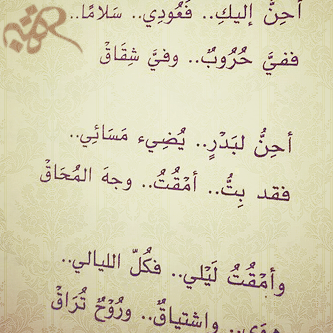 أحِنُّ إليكِ.. فَعُودِي.. سَلامًا..
ففيَّ حُرُوبٌ.. وفيَّ شِقَاقْ
أحِنُّ لبَدْرٍ.. يُضِيء مَسَائِي..
فقد بِتُّ.. أمْقُتُ.. وجهَ المُحَاقْ
وأمْقُتُ لَيْلي.. فكُلّ الليالي..
واشتياقٌ.. ورُوْحٌ تُرَاقْ